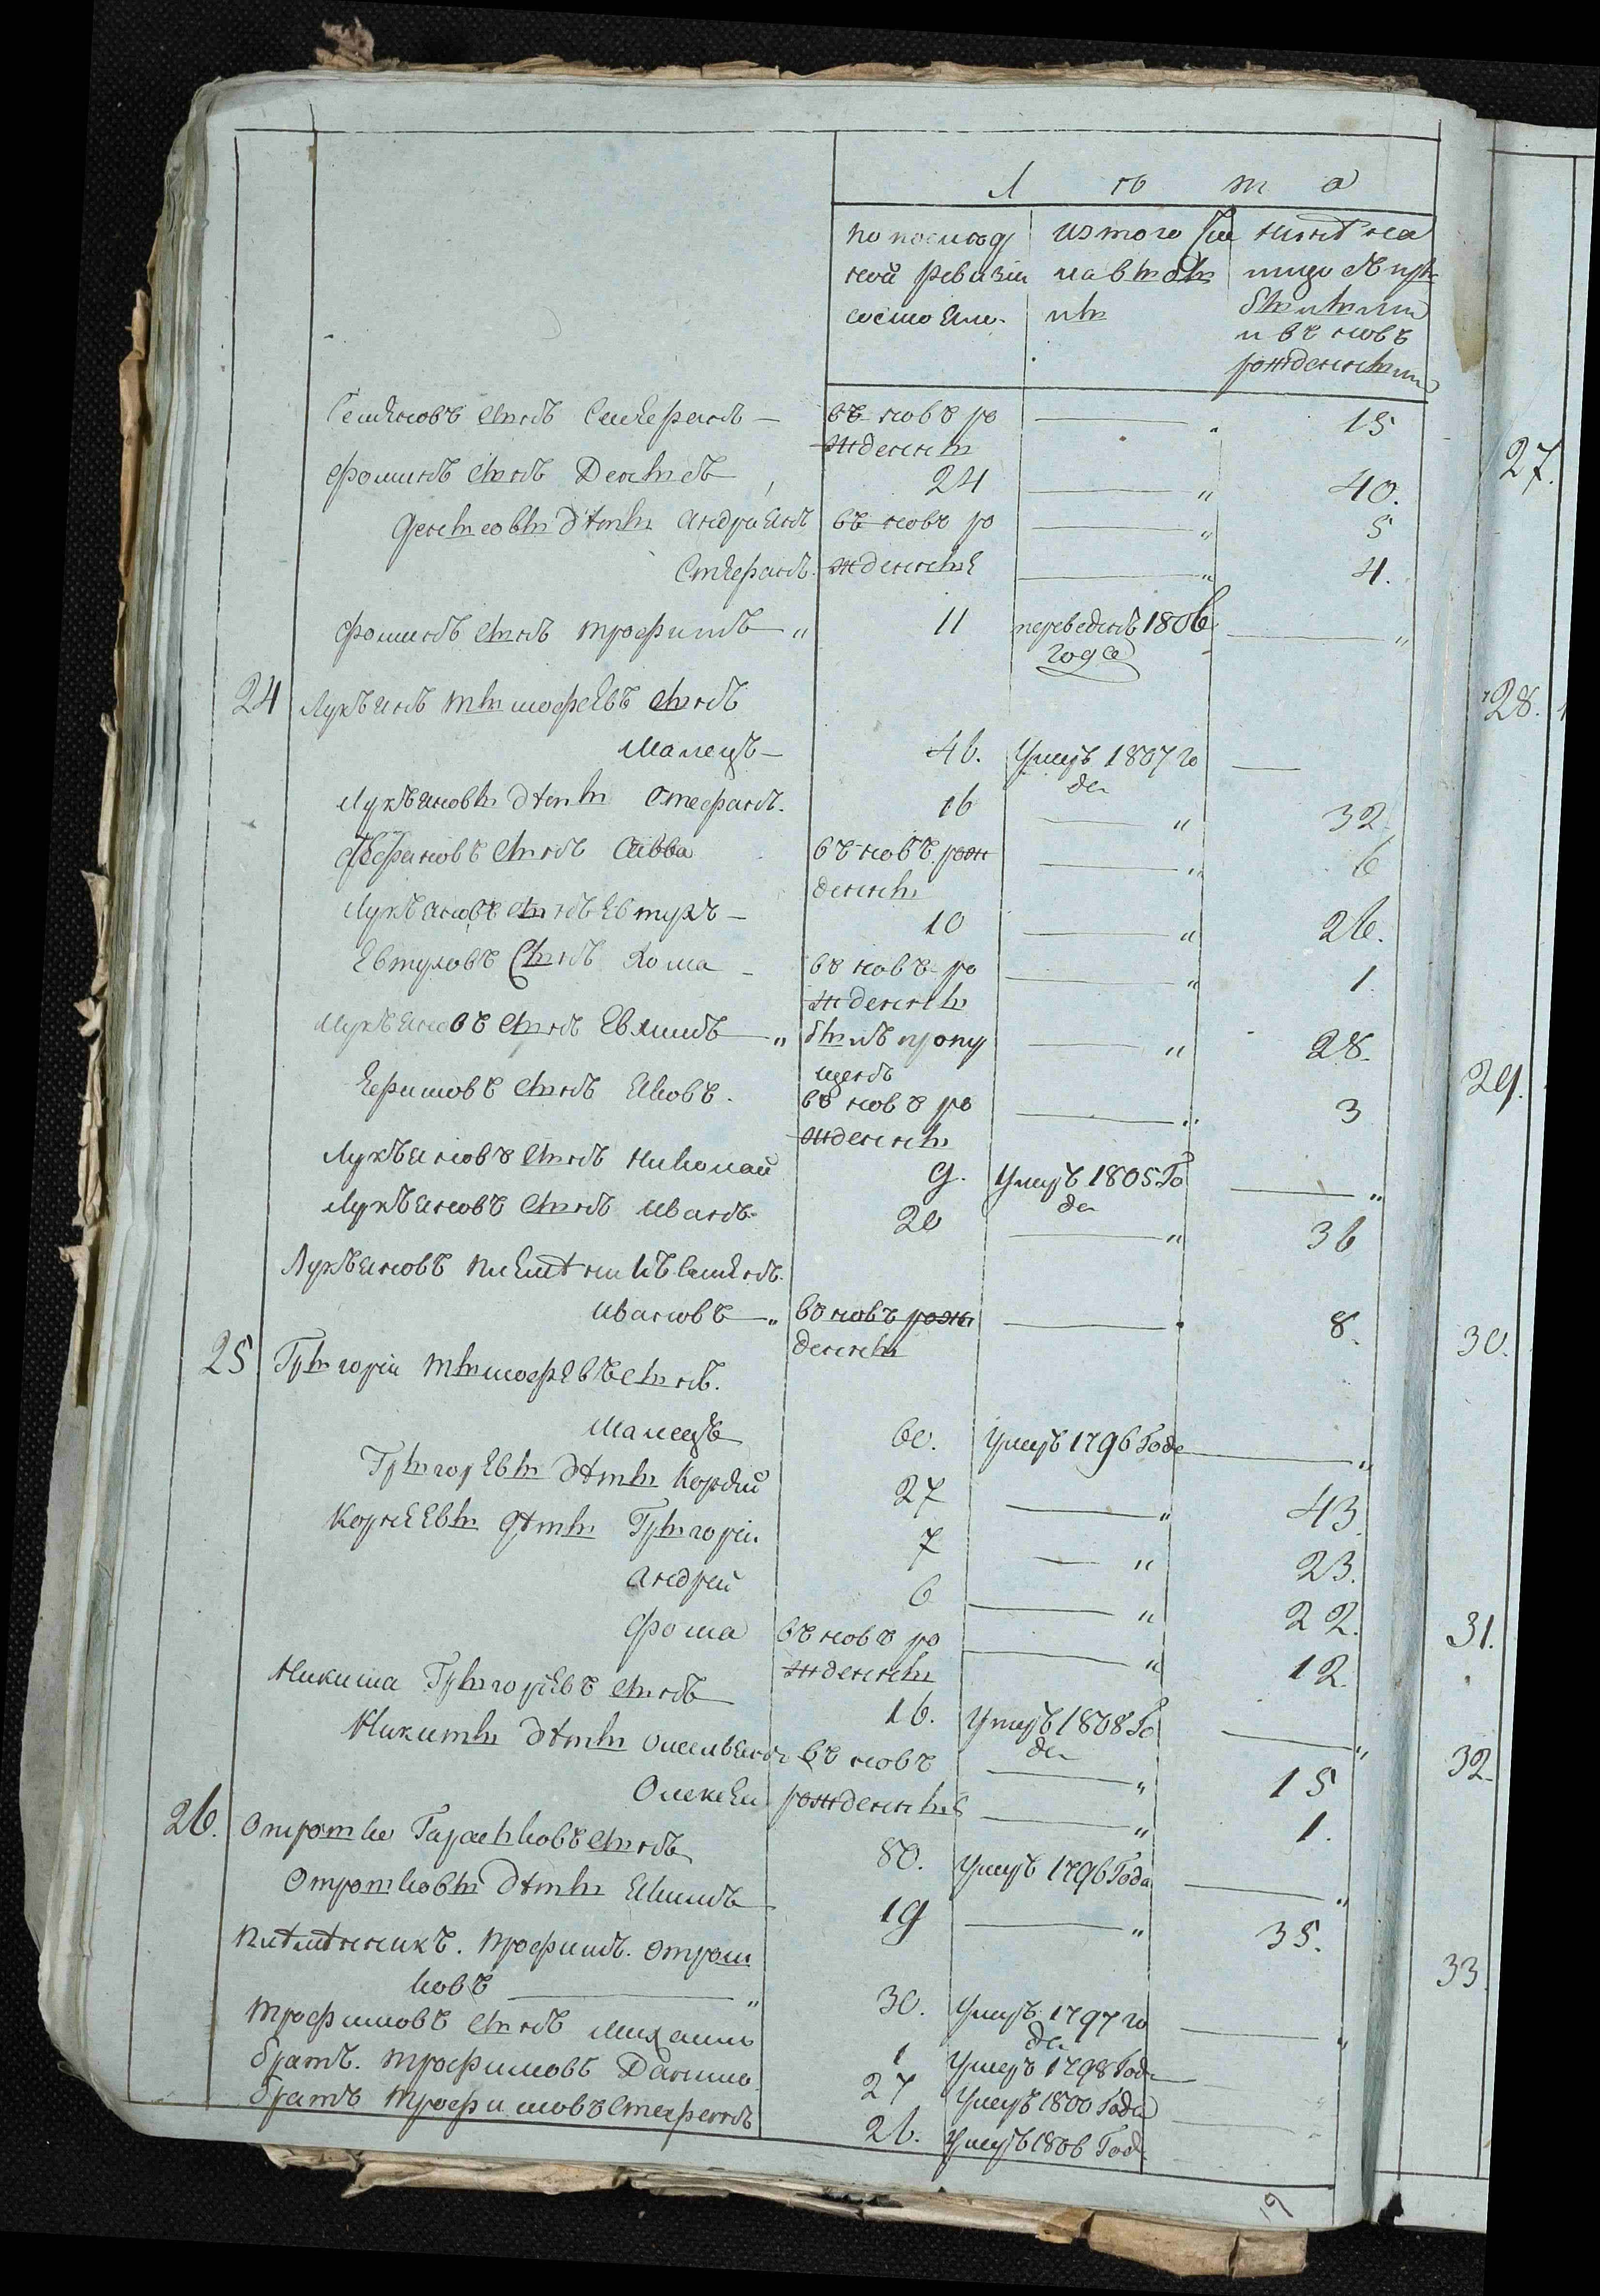 Л ѣ т а
по послѣд
ней ревизіи
состояло.
изъ того чи
сла выбы
ли
нынѣ на
лицо съ при
былыми
и въ новъ
рожденными
Семеновъ сынъ Стефанъ — въ новъ ро — 15
жденны
Фоминъ сынъ Денисъ 24 — " 40.
Денисовы дѣти Андреянъ въ новъ ро — " 5
Стефанъ жденные — " 4.
Фоминъ сынъ Трофимъ " 11 переведенъ 1806 — "
года
24 Лукьянъ Тимофеевъ сынъ
Малецъ — 46. Умеръ 1807 го —
да
Лукьяновы дѣти Стефанъ. 16 — " 32
Стефановъ сынъ Савва въ новъ рож — " 6
денны
Лукьяновъ сынъ Евтухъ — 10 — " 26.
Евтуховъ сынъ Хома — въ новъ ро — " 1.
жденны
Лукьяновъ сынъ Ефимъ — " былъ пропу — " 28.
щенъ
Ефимовъ сынъ Яковъ. въ новъ ро — " 3
жденны
Лукьяновъ сынъ Николай 9. Умеръ 1805 Го — "
да
Лукьяновъ сынъ Иванъ 20 — " 36
Лукьяновъ племѣнникъ Семенъ
Ивановъ — " въ новъ рож — 8.
денны
25 Григорій Тимофеевъ сынъ.
Малецъ 60. Умеръ 1796 Года — "
Григорьевы дѣти Корнѣй 27 — " 43
Корнеевы дѣти Григорій 7 — " 23.
Андрей 6 — " 22.
Фома въ новъ ро — " 12.
жденны
Никита Григорьевъ сынъ 16. Умеръ 1808 Го — "
да
Никиты дѣти Омельянъ въ новъ — " 15
Олексей рожденные — " 1.
26. Отрошко Гараськовъ сынъ 80. Умеръ 1796 Года — "
Отрошковы дѣти Якимъ 19 — " 35.
Племѣнникъ. Трофимъ. Отрош
ковъ — " 30. Умеръ 1797 го — "
да
Трофимовъ сынъ Михаило 1 Умеръ 1798 Года —
братъ. Трофимовъ Данило 27 Умеръ 1800 Года —
братъ Трофимовъ Стефанъ 26. Умеръ 1806 Года
19
27.
28.
29.
30.
31.
32.
33.